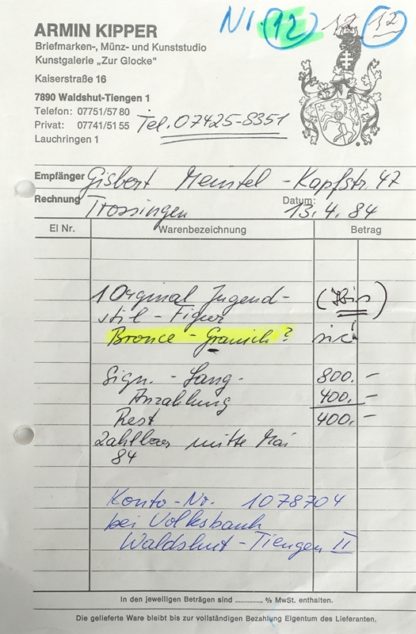 N1. 12 12 12
ARMIN KIPPER
Briefmarken-, Münz- und Kunststudio
Kunstgalerie „Zur Glocke"
Kaiserstraße 16
7890 Waldshut-Tiengen 1
Telefon: 07751/57 80
Privat: 07741/51 55
Lauchringen 1
Tel. 07425-8351
Empfänger Gisbert - Kapfstr. 47
Rechnung Trossingen Datum: 13.4.84
El Nr. Warenbezeichnung Betrag
1 Original Jugend- (Ibis)
stil-Figur
Bronce - Granich? sic!
Sign. - Lang. 800.-
Anzahlung 400.-
Rest 400.-
Zahlbar mitte Mai
84
Konto-Nr. 1078704
bei Volksbank
Waldshut-Tiengen II
In den jeweiligen Beträgen sind % MwSt. enthalten.
Die gelieferte Ware bleibt bis zur vollständigen Bezahlung Eigentum des Lieferanten.